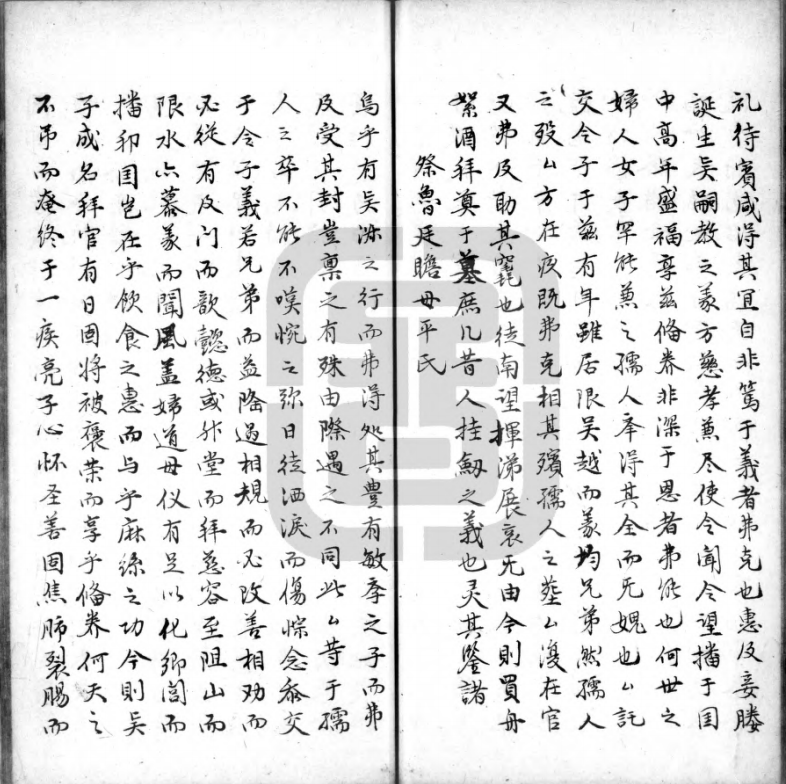 礼待賓咸得其宜自非篤于義者弗克也惠及妾媵
誕生吴嗣教之义方慈孝蒹尽使令闻令望播于国
中高年盛福尊兹俻养非深于恩者弗能也何世之
婦人女子罕能蒹之孺人率得其全而无媿也厶託
交令子于兹有年雖居限吴越而义均兄弟然孺人
之殁厶方在疚既弗克相其殯孺人之塟厶復在官
又弗及助其窆也徒南望揮涕展哀无由今則買舟
絮酒拜奠于墓庶几昔人挂劒之義也灵其鑒諸
祭魯廷瞻母平氏
烏乎有吴泺之行而弗得処其豊有敏孝之子而弗
及受其封豈稟之有殊由際遇之不同此厶昔于孺
人之卒不能不嘆惋之弥日徒洒淚而傷悰念忝交
于令子義若兄弟而益隆過相規而必改善相劝而
必從有及门而歆懿德或升堂而拜慈容至阻山而
限水亦慕义而聞風盖婦道母仪有足以化郷闾而
播邦国岂在乎飲食之惠而与乎麻絲之功今則吴
子成名拜官有日固将被褒荣而享乎俻养何天之
不吊而奄终于一疾亮子心怀圣善固焦肺裂腸而